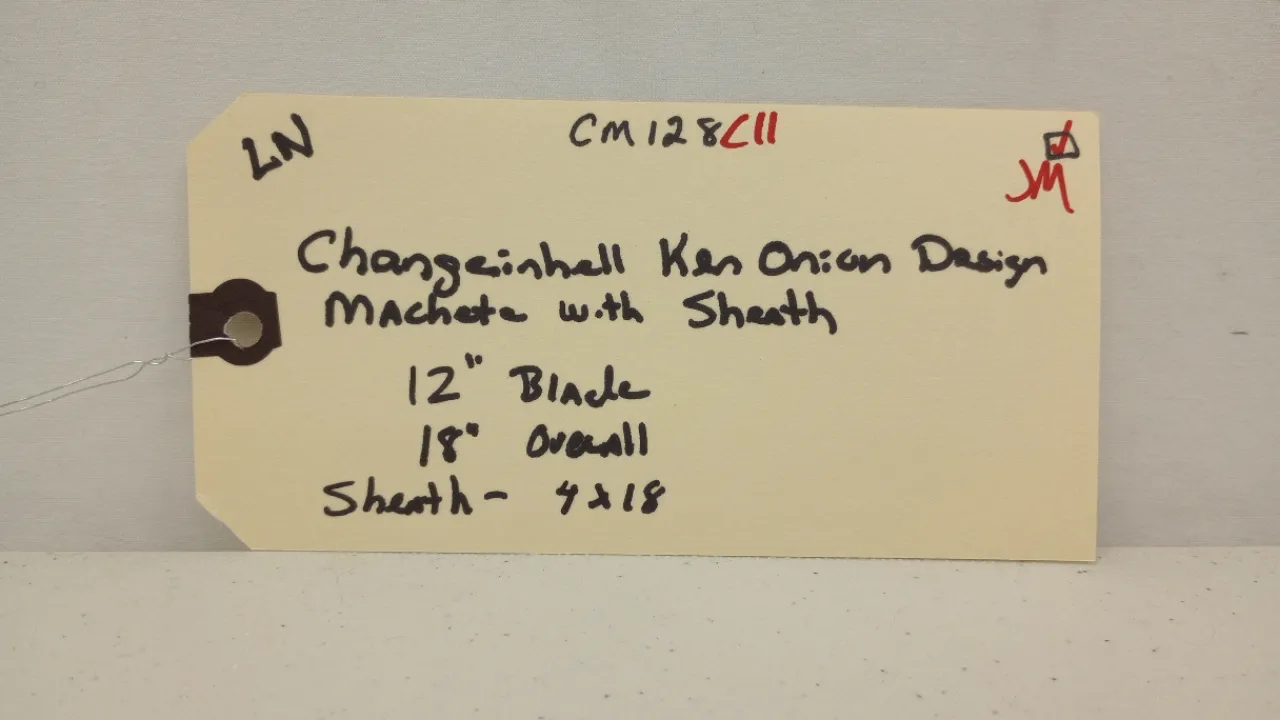 LN
CM128C11
JM
Changeinhell Ken Onion Design
Machete with Sheath
12" Blade
18" Overall
Sheath - 4x18